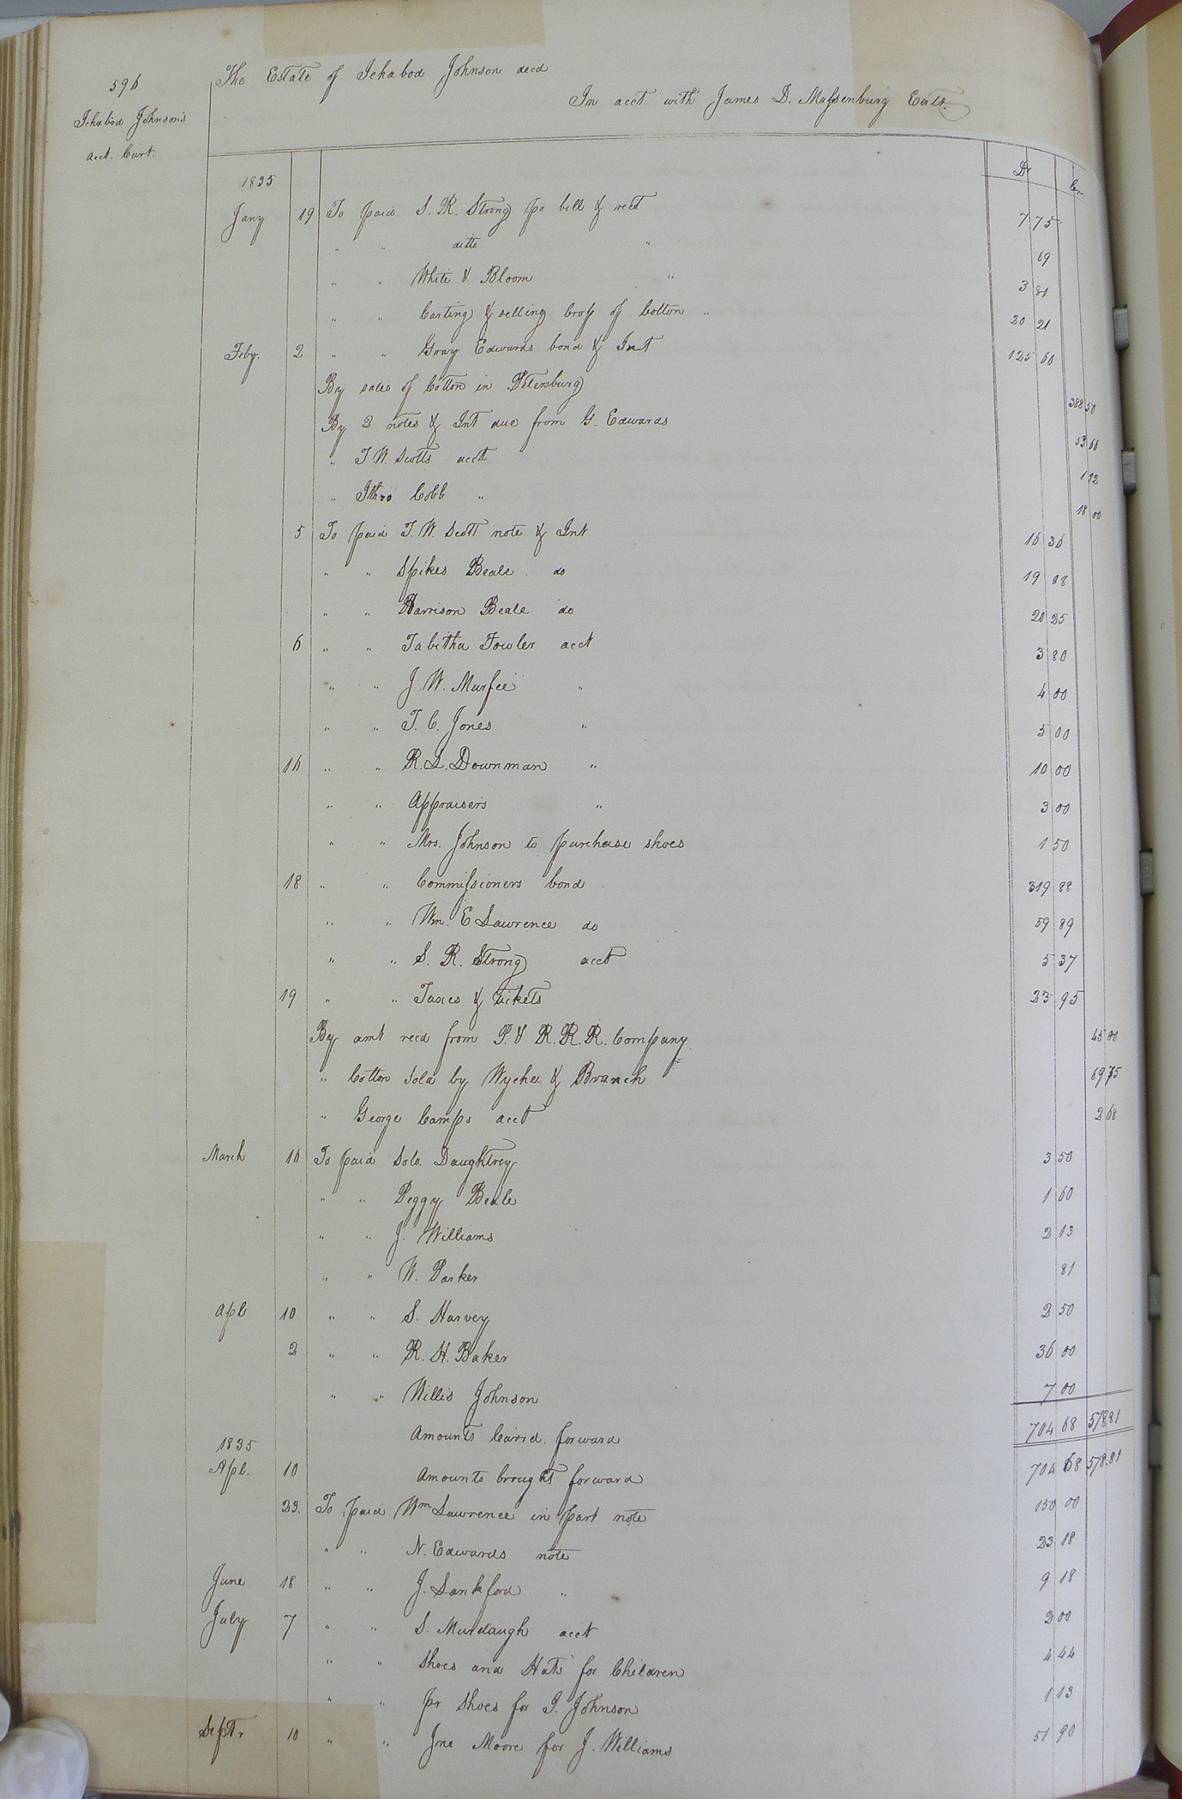 596
The Estate of Ichabod Johnson decd
In acct. with James D. Massenburg Exetr.
Ichabod Johnson's
acct. Curt.
Dr Cr
1835
Jany 19 To paid S. R. Strong pr bill & rect 7 75
" " ditto " 69
" " White & Bloom " 3 81
" " Carting & selling Crop of Cotton " 20 21
Feby. 2 " " Gray Edwards bond & Int 125 60
By sales of Cotton in Petersburg 388 50
By 2 notes & Int due from G. Edwards 53 66
" T W. Scotts acct 1 92
" Jthro Cobb " 18 00
5 To paid T. W. Scott note & Int 16 36
" " Spikes Beale do 19 08
" " Harrison Beale do 20 25
6 " " Tabitha Fowler acct 3 80
" " J. W. Murfee " 4 00
" " T. C. Jones " 5 00
16 " " R. L. Downman " 10 00
" " Appraisers " 3 00
" " Mrs. Johnson to purchase shoes 1 50
18 " " Commissioners bond 319 88
" " Wm. E Lawrence do 59 89
" " S. R. Strong acct 5 37
19 " " Taxes & Tickets 23 95
By amt recd from P. & R. R. R. Company 45 00
" Cotton sold by Wyche & Branch 69 75
" George Camps acct 2 68
March 16 To paid Solo. Daughtrey 3 50
" " Peggy Beale 1 60
" " J. Williams 2 13
" " W. Parker 81
Apl 10 " " S. Harvey 2 50
2 " " R. H. Baker 36 00
" " Willis Johnson 7 00
704 68 578 81
Amounts Carrd. forward
1835
Apl. 10 Amounts brought forward 704 68 578 81
23. To paid Wm Lawrence in part note 150 00
" " N. Edwards note 23 18
June 18 " " J. Lankford " 9 18
July 7 " " S. Murdaugh acct 2 00
" " Shoes and Hats for Children 4 44
" " pr shoes for I. Johnson 1 13
Septr 10 " " Jno Moore for J. Williams 51 90